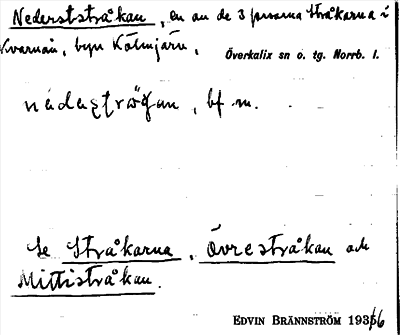 Nederststråkan, en av de 3 forsarna Stråkarna i
Kvarnån, byn Kölmjärv,
Överkalix sn o. tg. Norrb. l.
bf. m.
Se Stråkarna, Övrestråkan och
Mittistråkan.
EDVIN BRÄNNSTRÖM 1936